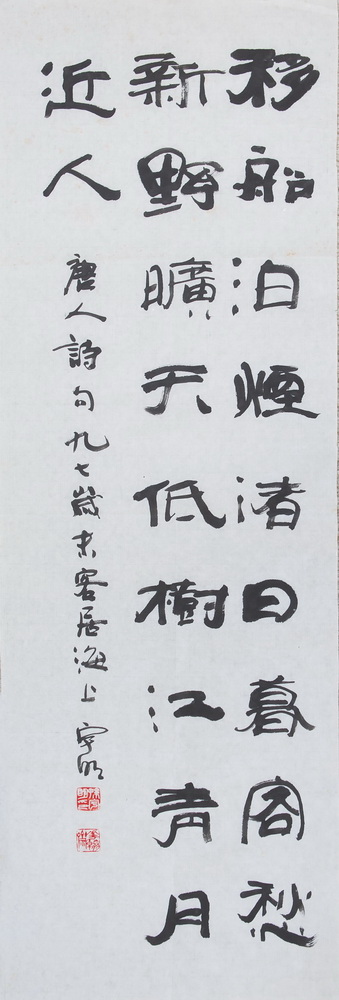 移船泊煙渚日暮客愁
新野曠天低樹江青月
近人
唐人詩句九七歲末客居海上